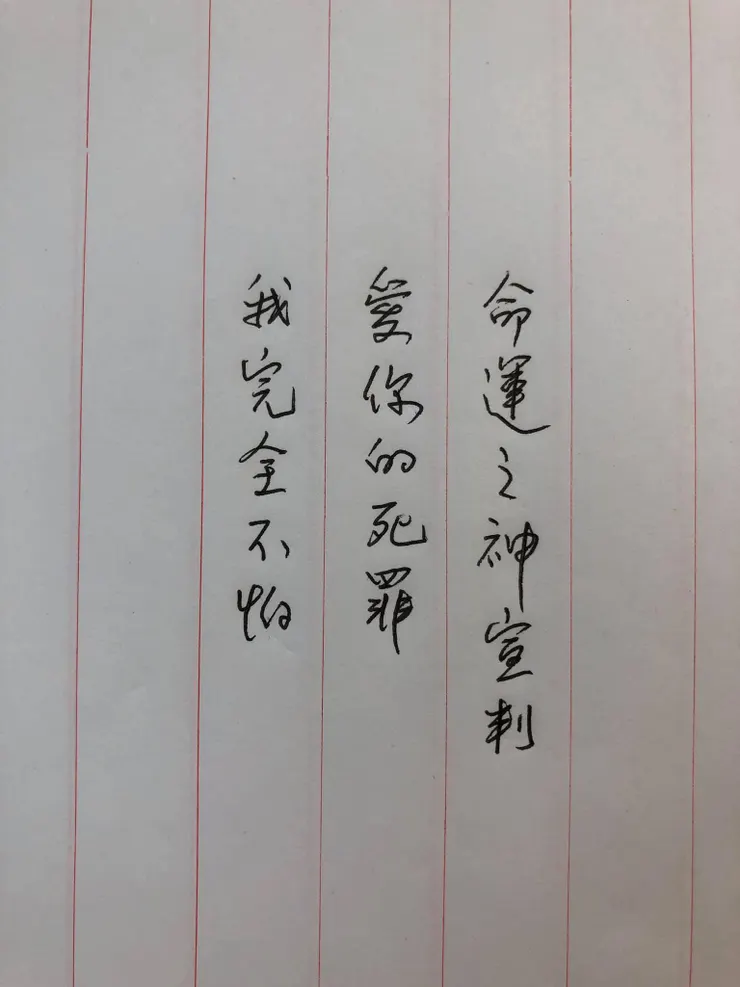 命運之神宣判
愛你的死罪
我完全不怕